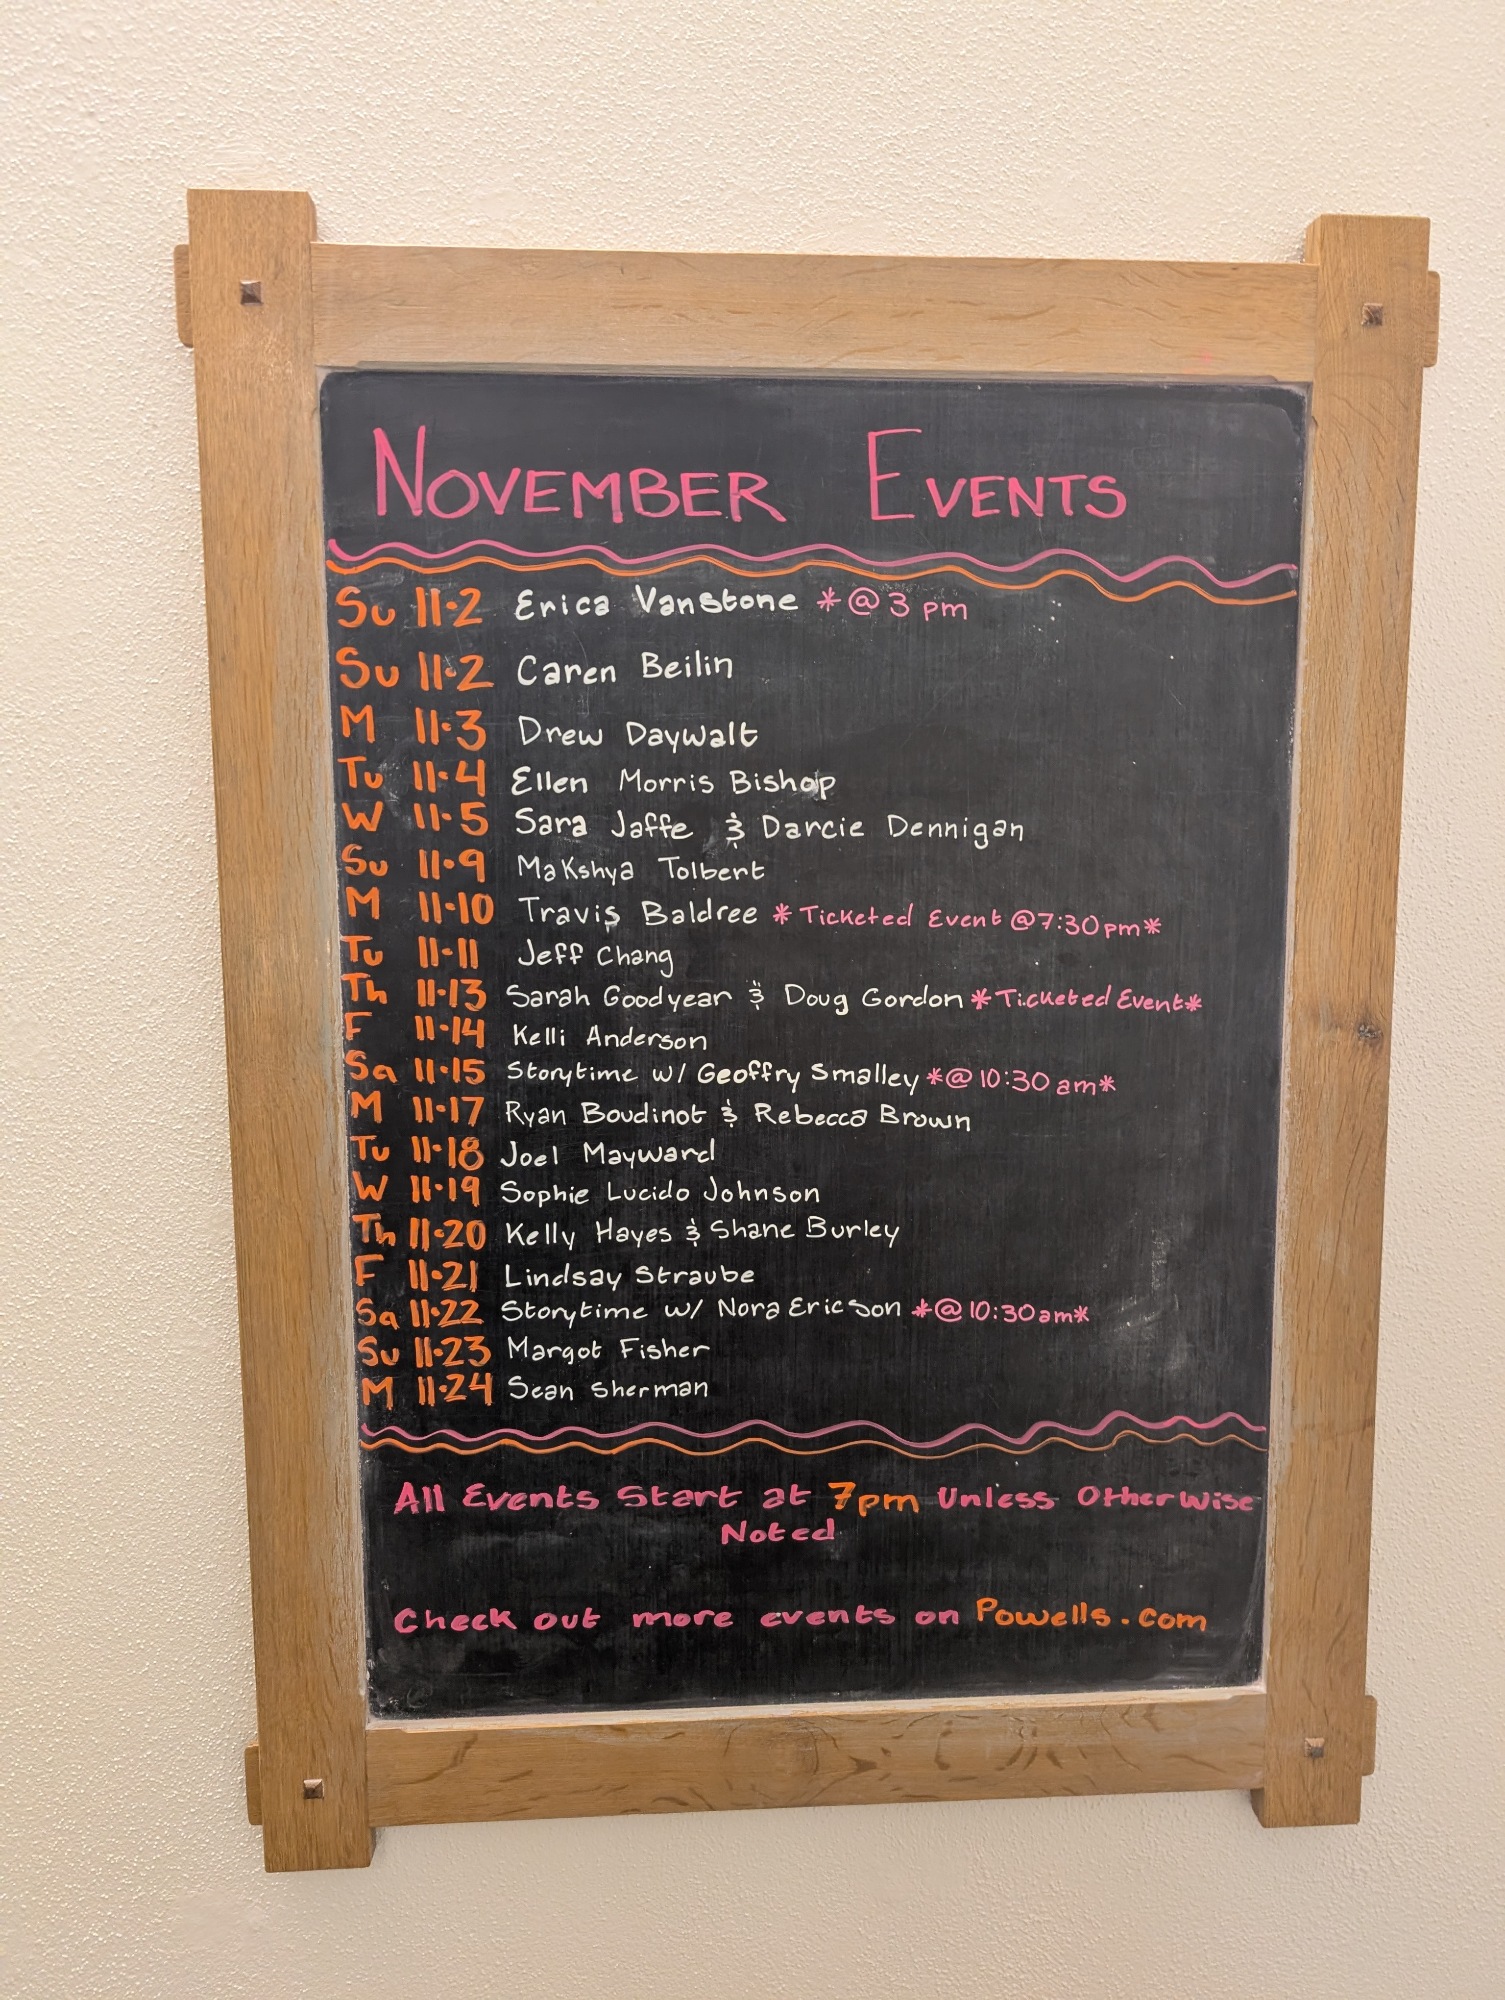 NOVEMBER EVENTS
Su 11·2 Erica VanStone *@3 pm
Su 11·2 Caren Beilin
M 11·3 Drew Daywalt
Tu 11·4 Ellen Morris Bishop
W 11·5 Sara Jaffe & Darcie Dennigan
Su 11·9 Makshya Tolbert
M 11·10 Travis Baldree *Ticketed Event @7:30pm*
Tu 11·11 Jeff Chang
Th 11·13 Sarah Goodyear & Doug Gordon *Ticketed Event*
F 11·14 Kelli Anderson
Sa 11·15 Storytime w/ Geoffry Smalley *@10:30am*
M 11·17 Ryan Boudinot & Rebecca Brown
Tu 11·18 Joel Mayward
W 11·19 Sophie Lucido Johnson
Th 11·20 Kelly Hayes & Shane Burley
F 11·21 Lindsay Straube
Sa 11·22 Storytime w/ Nora Ericson *@10:30am*
Su 11·23 Margot Fisher
M 11·24 Sean Sherman
All Events Start at 7pm Unless Otherwise
Noted
Check out more events on Powells.com